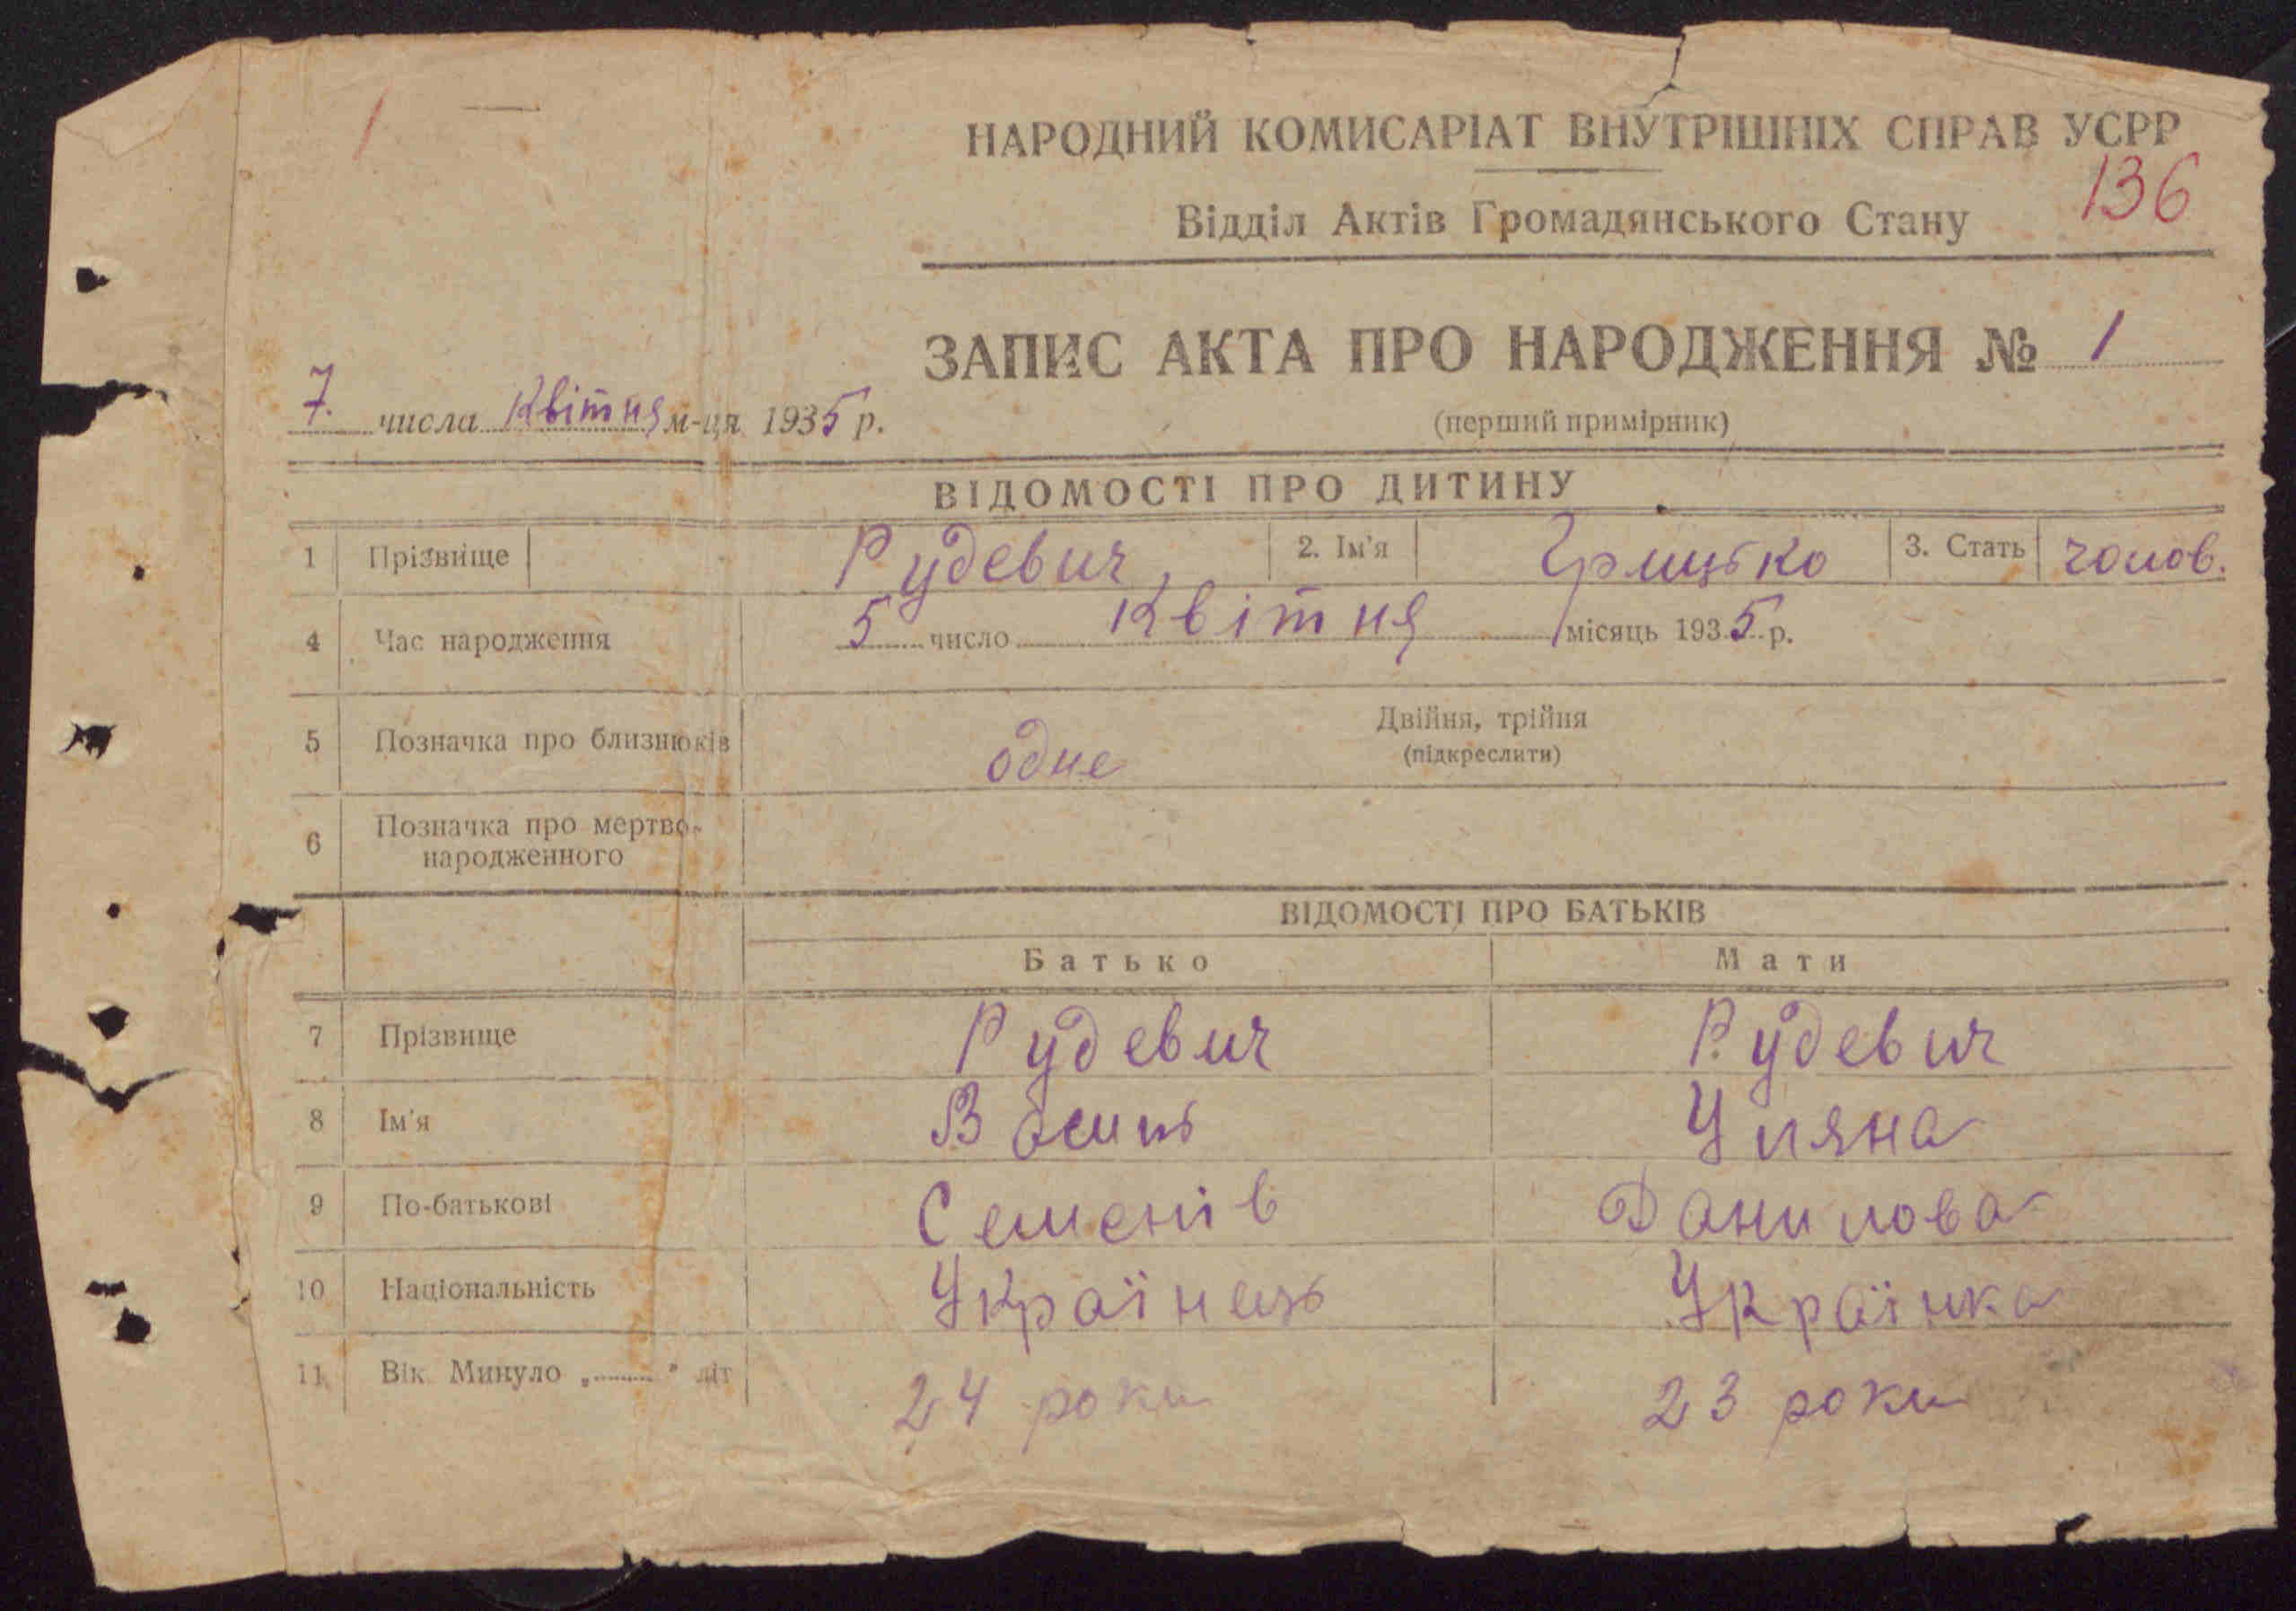 НАРОДНИЙ КОМИСАРІАТ ВНУТРІШНІХ СПРАВ УСРР
136
Відділ Актів Громадянського Стану
ЗАПИС АКТА ПРО НАРОДЖЕННЯ № 1
7. числа Квітня м-ця 1935 р.
(перший примірник)
ВІДОМОСТІ ПРО ДИТИНУ
1 Прізвище Рудевич 2. Ім'я Грицько 3. Стать чолов.
4 Час народження 5 число Квітня місяць 1935 р.
5 Позначка про близнюків одне Двійня, трійня
(підкреслити)
6 Позначка про мертво-
народженного
ВІДОМОСТІ ПРО БАТЬКІВ
Батько Мати
7 Прізвище Рудевич Рудевич
8 Ім'я Василь Уляна
9 По-батькові Семенів Данилова
10 Національність Українець Українка
11 Вік Минуло „........" літ 24 роки 23 роки